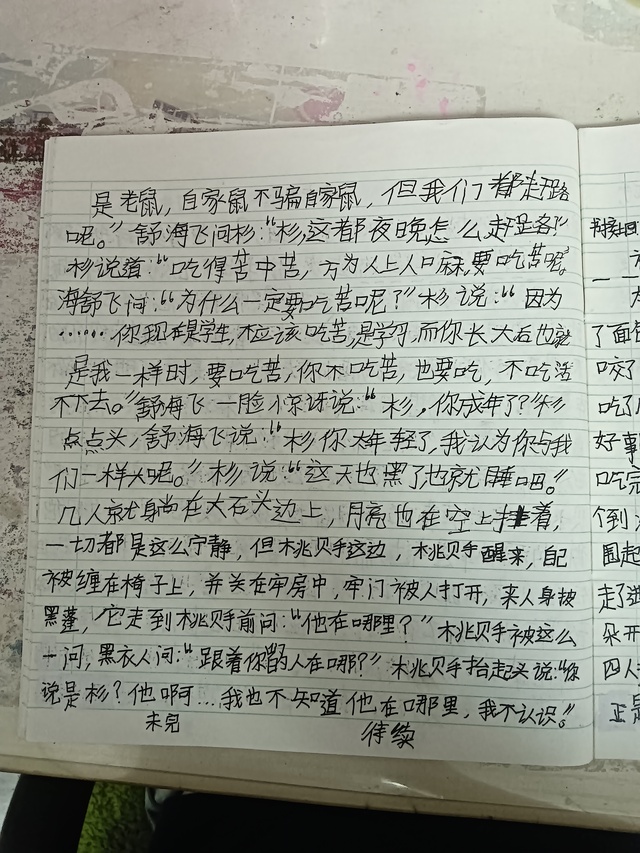 是老鼠，自家鼠不骗自家鼠，但我们都赶路
呢。”舒海飞问杉：“杉，这都夜晚怎么赶路？”
杉说道：“吃得苦中苦，方为人上人口麻，要吃苦呢。”
海舒飞问：“为什么一定要吃苦呢？”杉说：“因为
……你现在是学生，不应该吃苦，是学习，而你长大后也就
是我一样时，要吃苦，你不吃苦，也要吃，不吃活
不下去。”舒海飞一脸惊讶说：“杉，你成年了？”杉
点点头，舒海飞说：“杉你太年轻了，我认为你与我
们一样大呢。”杉说：“这天也黑了也就睡吧。”
几人就躺在大石头边上，月亮也在空上挂着，
一切都是这么宁静，但桃贝手这边，桃贝手醒来，自己
被缠在椅子上，并关在牢房中，牢门被人打开，来人身披
黑蓬，它走到桃贝手前问：“他在哪里？”桃贝手被这么
一问，黑衣人问：“跟着你的人在哪？”桃贝手抬起头说：“你
说是杉？他啊…我也不知道他在哪里，我不认识。”
未完 待续
了面
咬了
吃了
好事
吃完
倒
围起
走了进
朵开
四人
正是